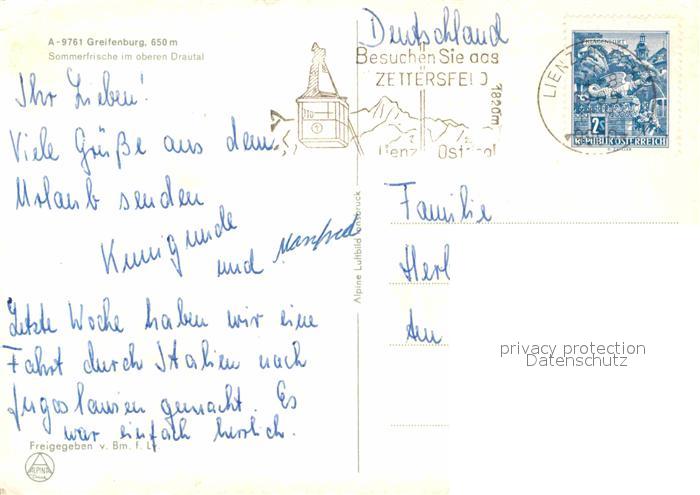 A-9761 Greifenburg, 650 m
Sommerfrische im oberen Drautal
Ihr Lieben!
Viele Grüße aus dem
Urlaub senden
Kunigunde
und Manfred
Letzte Woche haben wir eine
Fahrt durch Italien nach
Jugoslawien gemacht. Es
war einfach herrlich.
Freigegeben v. Bm. f. Lv.
ALPINA
Druck
Alpine Luftbild Innsbruck
Deutschland
Besuchen Sie das
ZETTERSFELD
1820m
Lienz Osttirol
LIENZ
KLAGENFURT
2S
REPUBLIK ÖSTERREICH
Familie
Herl
Am
privacy protection
Datenschutz